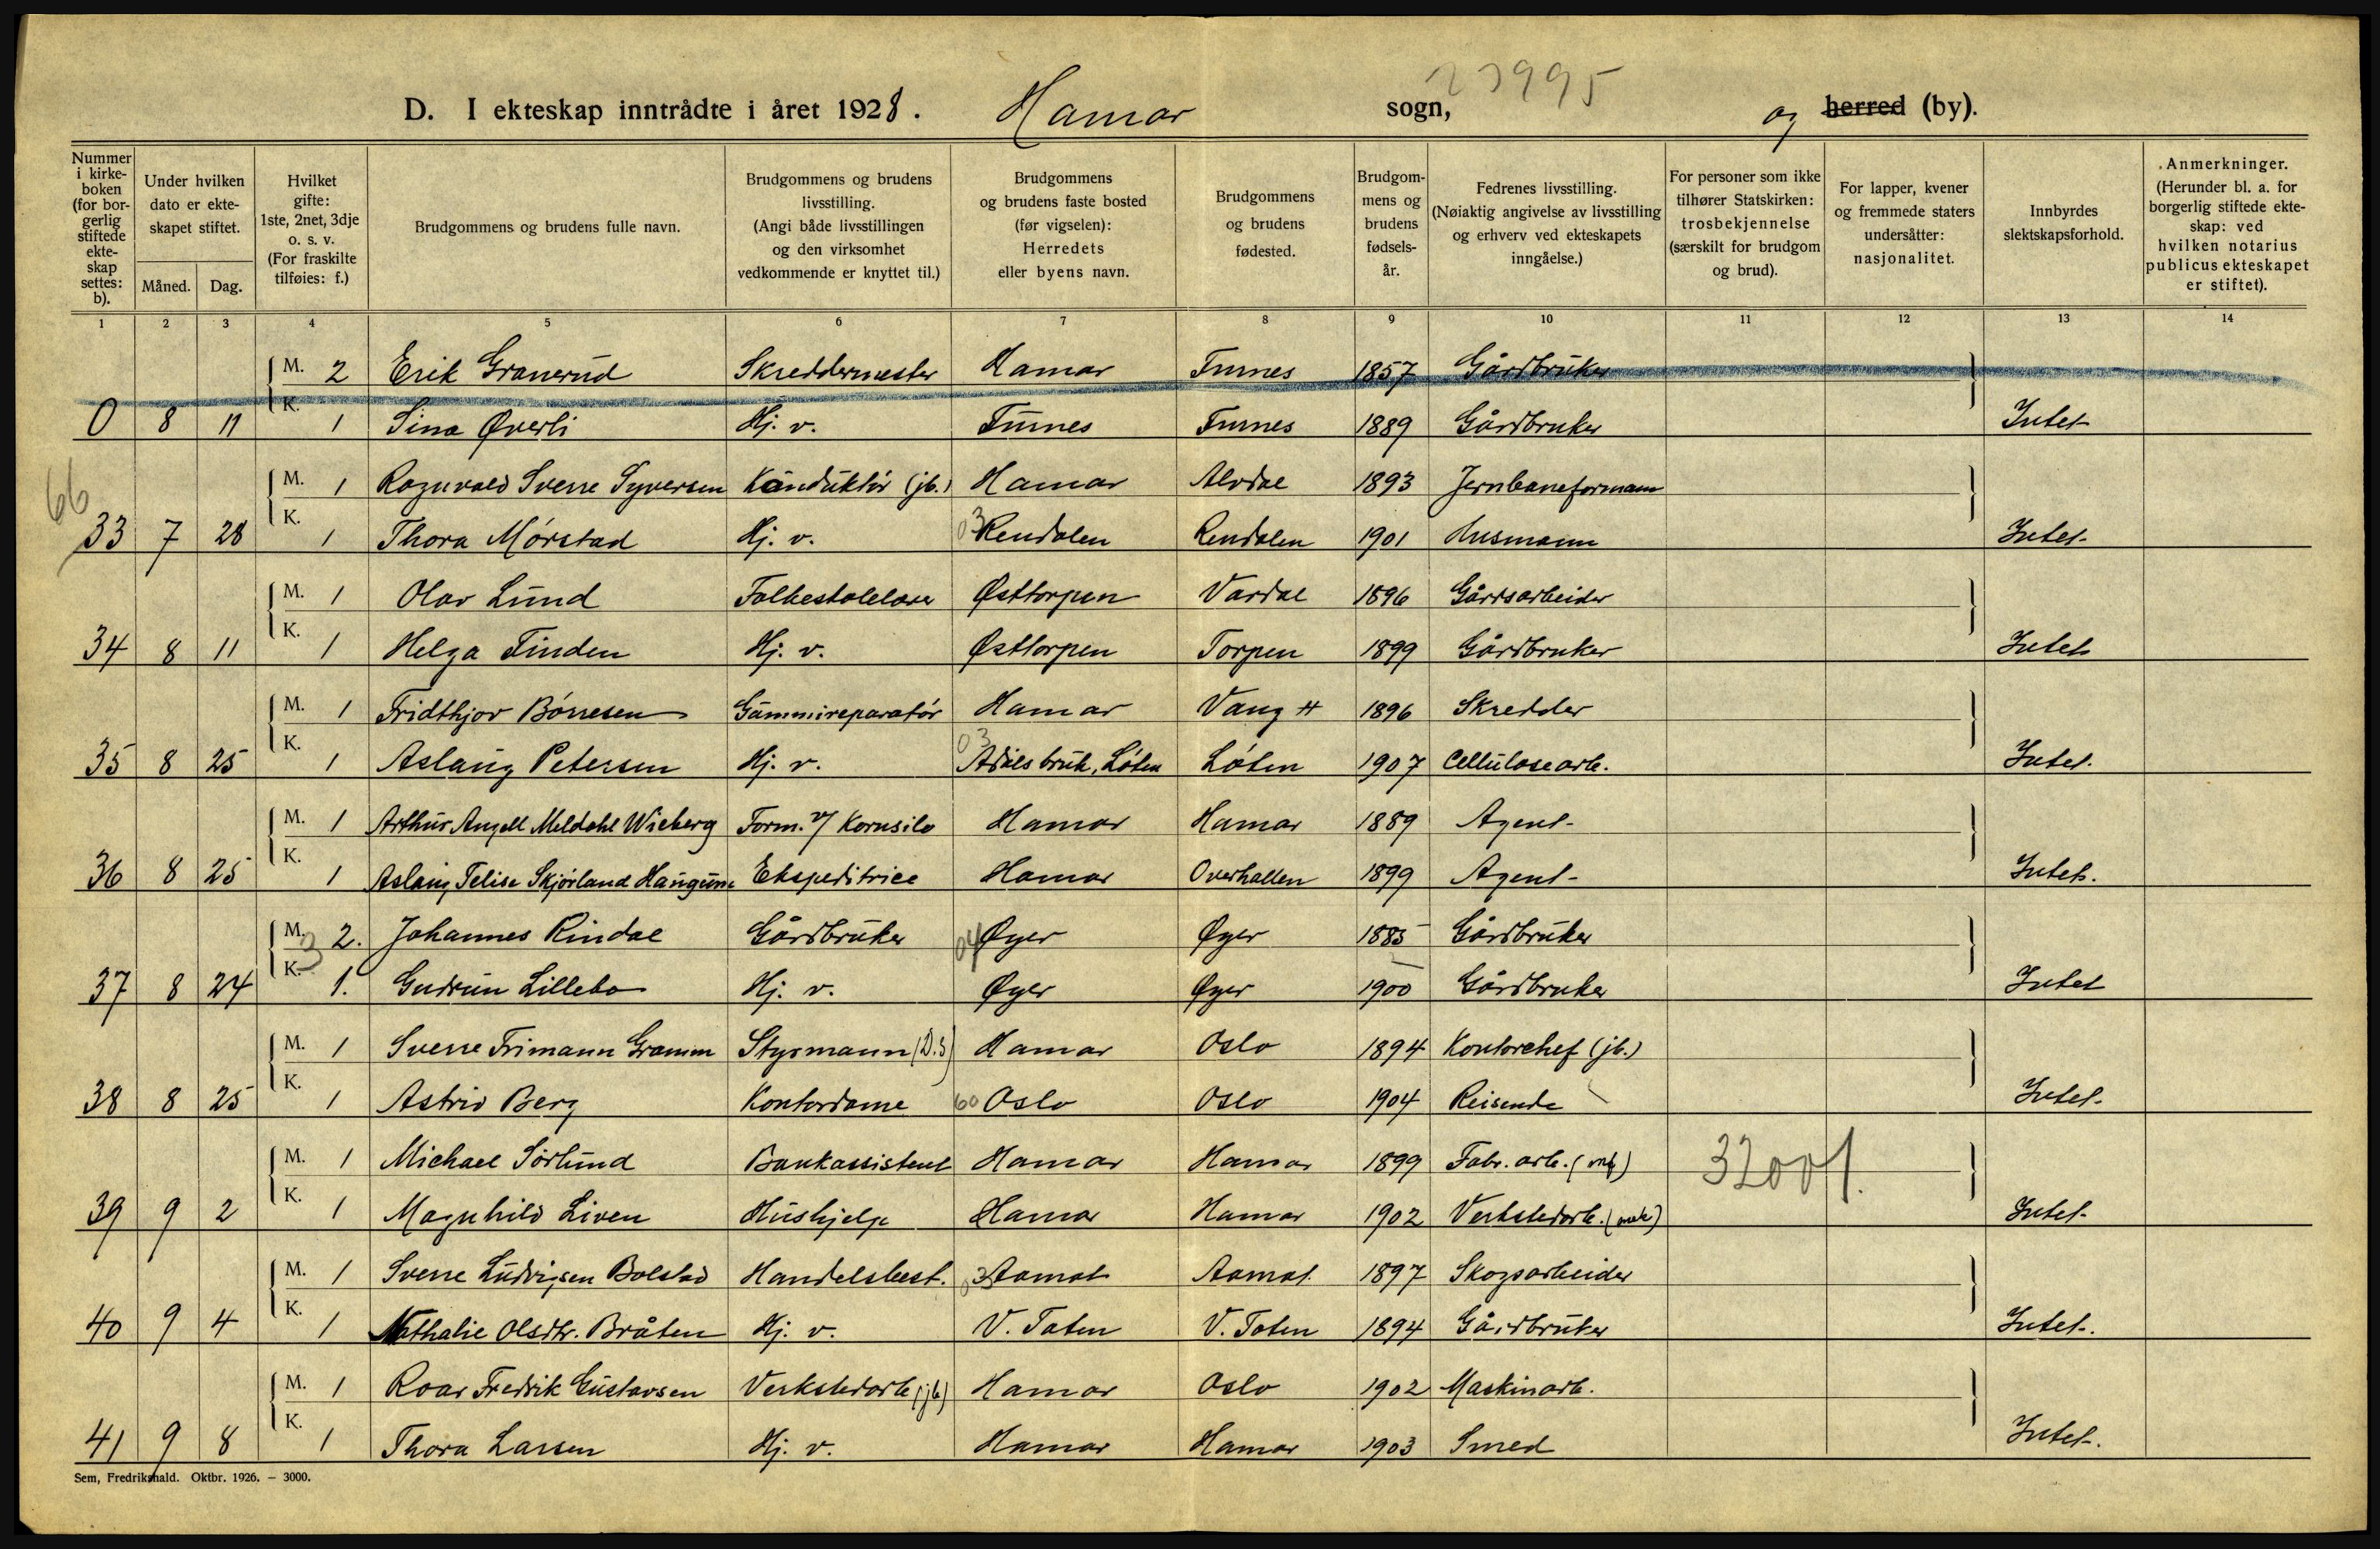 23995
D. I ekteskap inntrådte i året 1928. Hamar sogn, og herred (by).
Nummer i kirkeboken (for borgerlig stiftede ekteskap settes: b).
Under hvilken dato er ekteskapet stiftet.
Måned. Dag.
Hvilket gifte: 1ste, 2net, 3dje o. s. v. (For fraskilte tilføies: f.)
Brudgommens og brudens fulle navn.
Brudgommens og brudens livsstilling. (Angi både livsstillingen og den virksomhet vedkommende er knyttet til.)
Brudgommens og brudens faste bosted (før vigselen): Herredets eller byens navn.
Brudgommens og brudens fødested.
Brudgommens og brudens fødselsår.
Fedrenes livsstilling. (Nøiaktig angivelse av livsstilling og erhverv ved ekteskapets inngåelse.)
For personer som ikke tilhører Statskirken: trosbekjennelse (særskilt for brudgom og brud).
For lapper, kvener og fremmede staters undersåtter: nasjonalitet.
Innbyrdes slektskapsforhold.
Anmerkninger. (Herunder bl. a. for borgerlig stiftede ekteskap: ved hvilken notarius publicus ekteskapet er stiftet).
1 2 3 4 5 6 7 8 9 10 11 12 13 14
M. 2 Erik Granerud Skreddermester Hamar Furnes 1857 Gårdbruker
0 8 11 K. 1 Sina Øverli Hj. v. Furnes Furnes 1889 Gårdbruker Intet
66
M. 1 Ragnvald Sverre Syversen Konduktør (jb.) Hamar Alvdal 1893 Jernbaneformann
33 7 28 K. 1 Thora Mørstad Hj. v. 03 Rendalen Rendalen 1901 Husmann Intet
M. 1 Olav Lund Folkeskolelærer Østtorpen Vardal 1896 Gårdsarbeider
34 8 11 K. 1 Helga Finden Hj. v. Østtorpen Torpen 1899 Gårdbruker Intet
M. 1 Fridthjov Børresen Gummireparatør Hamar Vang H 1896 Skredder
35 8 25 K. 1 Aslaug Petersen Hj. v. 03 Ådalsbruk, Løten Løten 1907 Cellulosearb. Intet.
M. 1 Arthur Angell Meldahl Wieberg Form. v/ Kornsilo Hamar Hamar 1889 Agent
36 8 25 K. 1 Aslaug Telise Skjørland Haugum Ekspeditrice Hamar Overhallen 1899 Agent Intet.
M. 3 2. Johannes Rindal Gårdbruker 04 Øyer Øyer 1885 Gårdbruker
37 8 24 K. 1. Gudrun Lillebo Hj. v. Øyer Øyer 1900 Gårdbruker Intet
M. 1 Sverre Frimann Gramm Styrmann (D.S) Hamar Oslo 1894 Kontorchef (jb.)
38 8 25 K. 1 Astrid Berg Kontordame 60 Oslo Oslo 1904 Reisende Intet.
M. 1 Michael Sørlund Bankassistent Hamar Hamar 1899 Fabr. arb. (mek) 3200 1.
39 9 2 K. 1 Magnhild Liven Hushjelp Hamar Hamar 1902 Verkstedarb. (mek) Intet.
M. 1 Sverre Ludvigsen Bolstad Handelsbest. 03 Aamot Aamot 1897 Skogsarbeider
40 9 4 K. 1 Nathalie Olsdtr. Bråten Hj. v. V. Toten V. Toten 1894 Gårdbruker Intet.
M. 1 Roar Fredrik Gustavsen Verkstedarb (jb) Hamar Oslo 1902 Maskinarb.
41 9 8 K. 1 Thora Larsen Hj. v. Hamar Hamar 1903 Smed Intet.
Sem, Fredrikshald. Oktbr. 1926. — 3000.